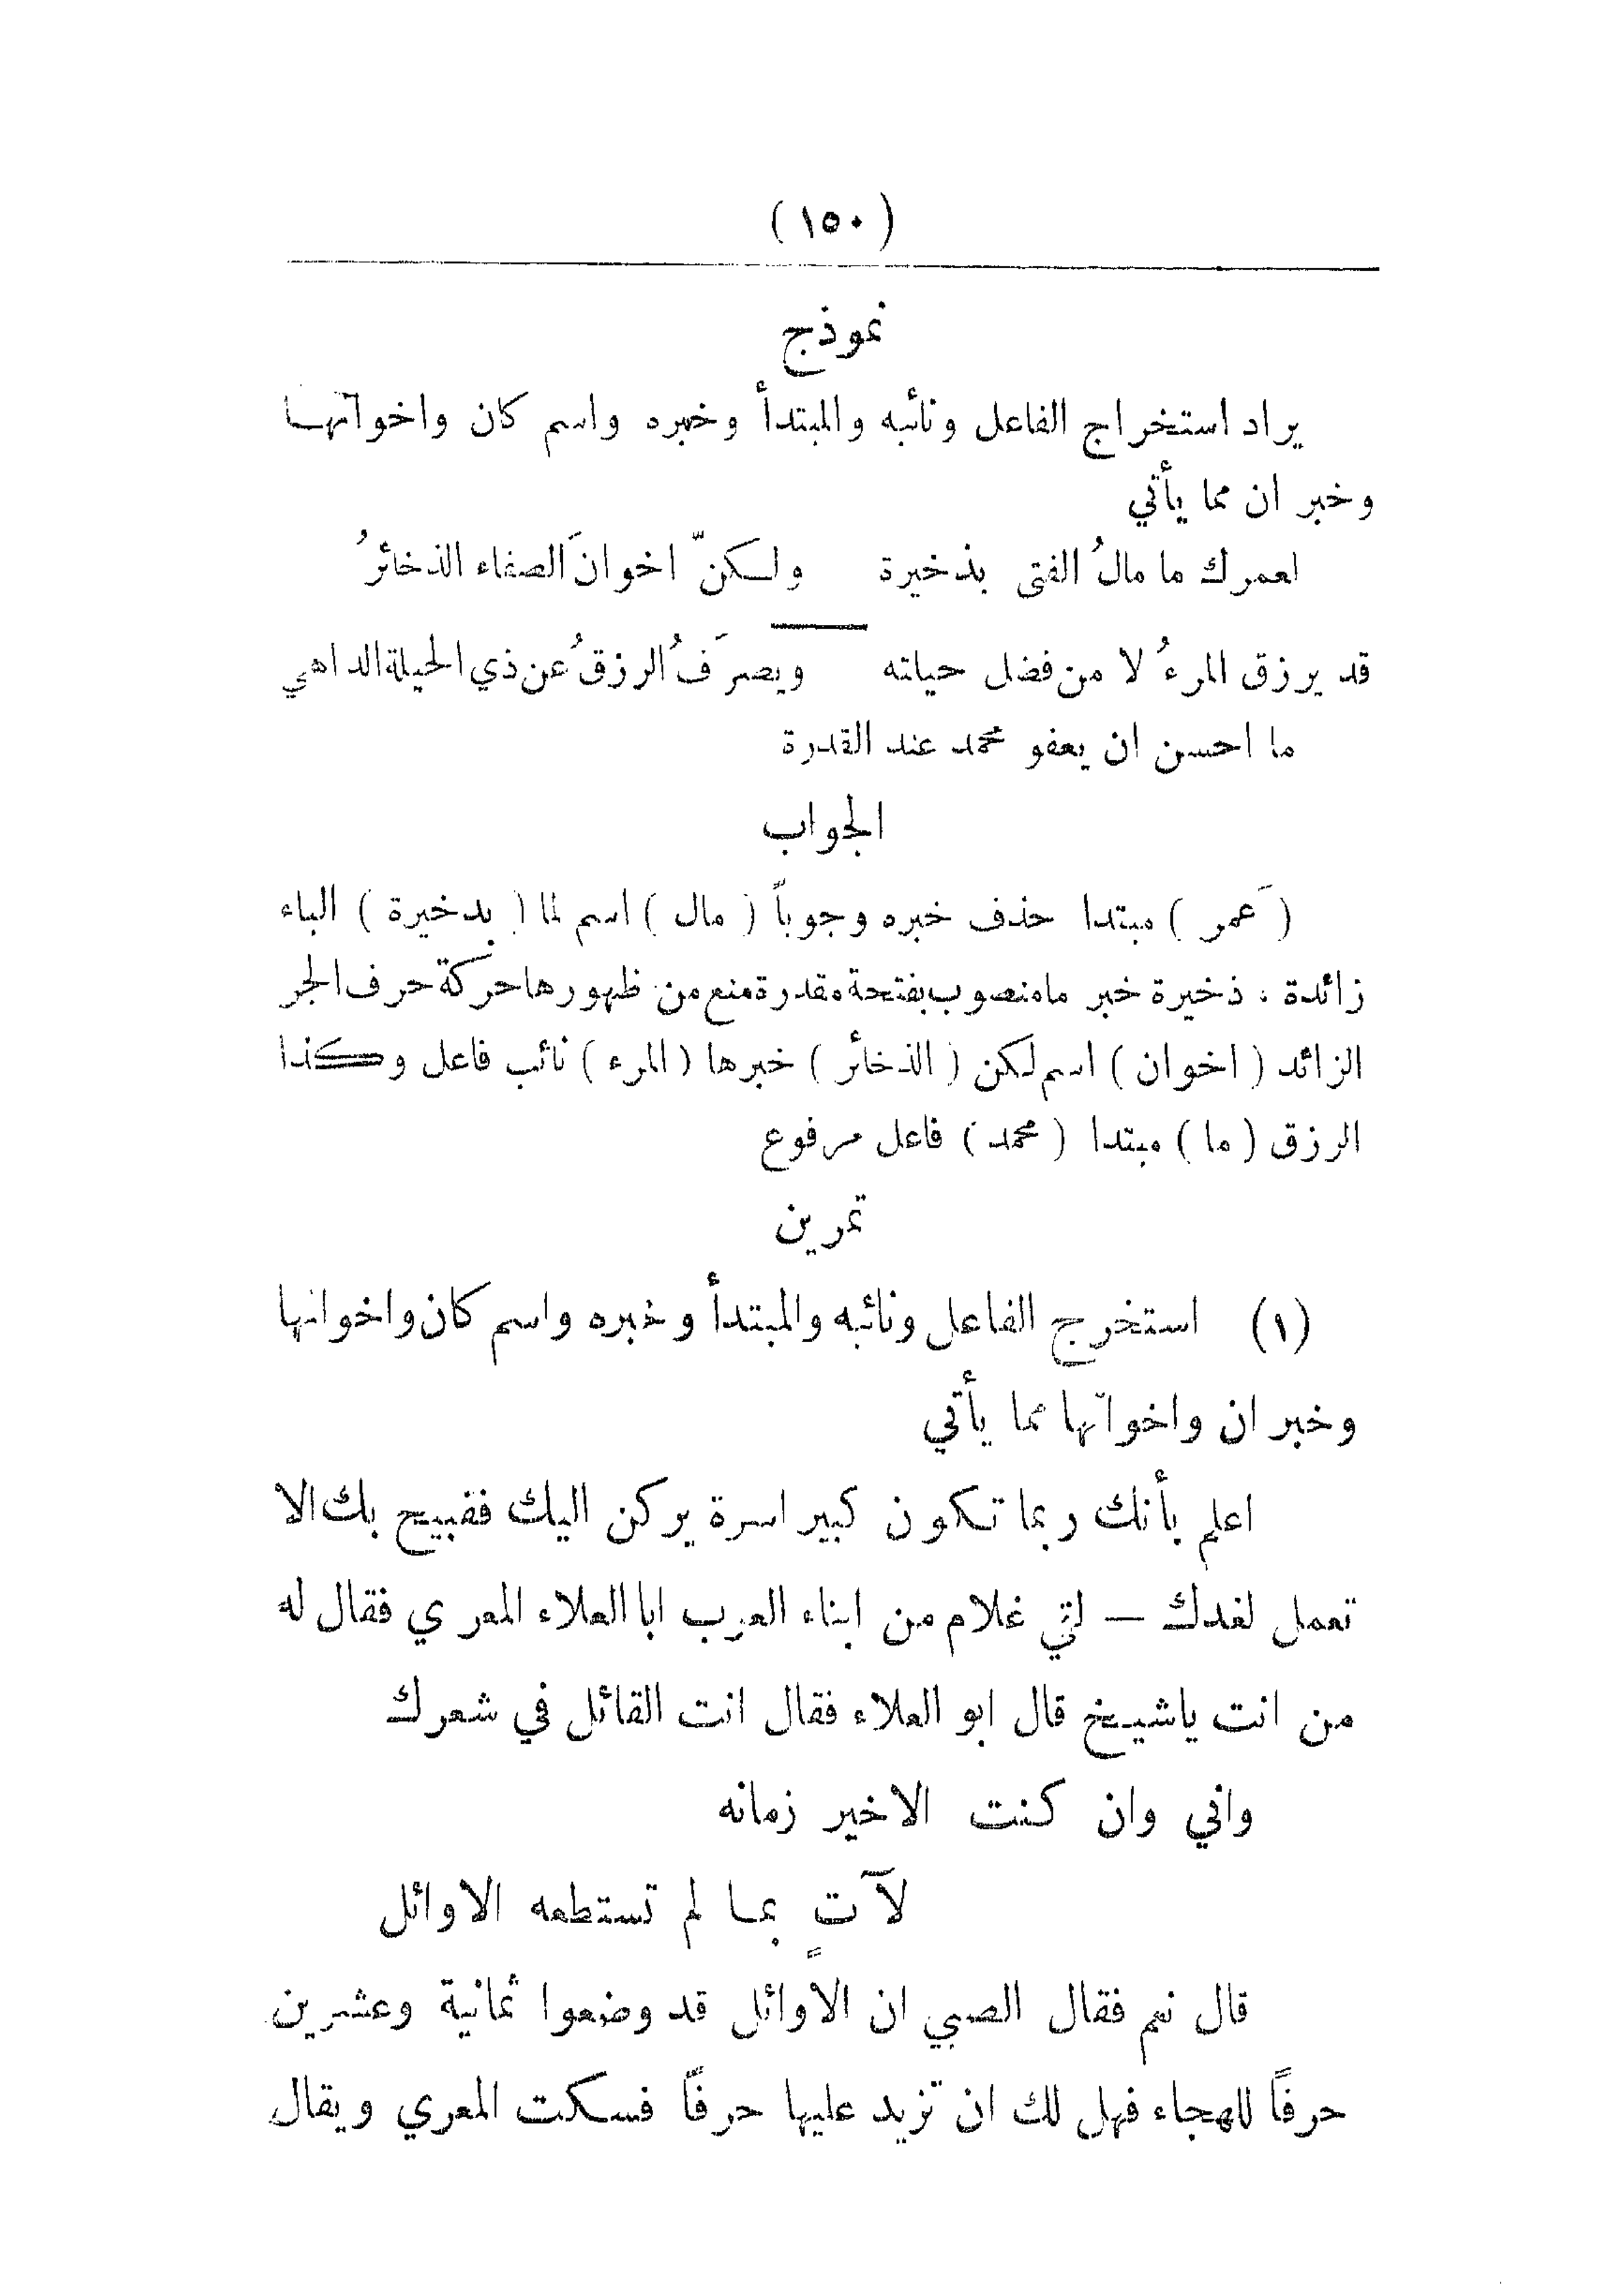 ( ١٥٠ )
نموذج
يراد استخراج الفاعل ونائبه والمبتدأ وخبره واسم كان واخواتهـا
وخبر ان مما يأتي
لعمرك ما مالُ الفتى بذخيرة ولـكنّ اخوانَ الصفاء الذخائرُ
قد يرزق المرءُ لا من فضل حياته ويصرَفُ الرزقُ عن ذي الحيلة الداهي
ما احسن ان يعفو محمد عند القدرة
الجواب
( عَمر ) مبتدا حذف خبره وجوباً ( مال ) اسم لما ( بدخيرة ) الباء
زائدة ، ذخيرة خبر ما منصوب بفتحة مقدرة منع من ظهورها حركة حرف الجر
الزائد ( اخوان ) اسم لكن ( الذخائر ) خبرها ( المرء ) نائب فاعل وكذا
الرزق ( ما ) مبتدا ( محمد ) فاعل مرفوع
تمرين
(١) استخرج الفاعل ونائبه والمبتدأ وخبره واسم كان واخواتها
وخبر ان واخواتها مما يأتي
اعلم بأنك ربما تكون كبير اسرة يركن اليك فقبيح بك الا
تعمل لغدك — لقي غلام من ابناء العرب ابا العلاء المعري فقال له
من انت ياشيخ قال ابو العلاء فقال انت القائل في شعرك
واني وان كنت الاخير زمانه
لآتٍ بمـا لم تستطعه الاوائل
قال نعم فقال الصبي ان الأوائل قد وضعوا ثمانية وعشرين
حرفاً للهجاء فهل لك ان تزيد عليها حرفاً فسكت المعري ويقال